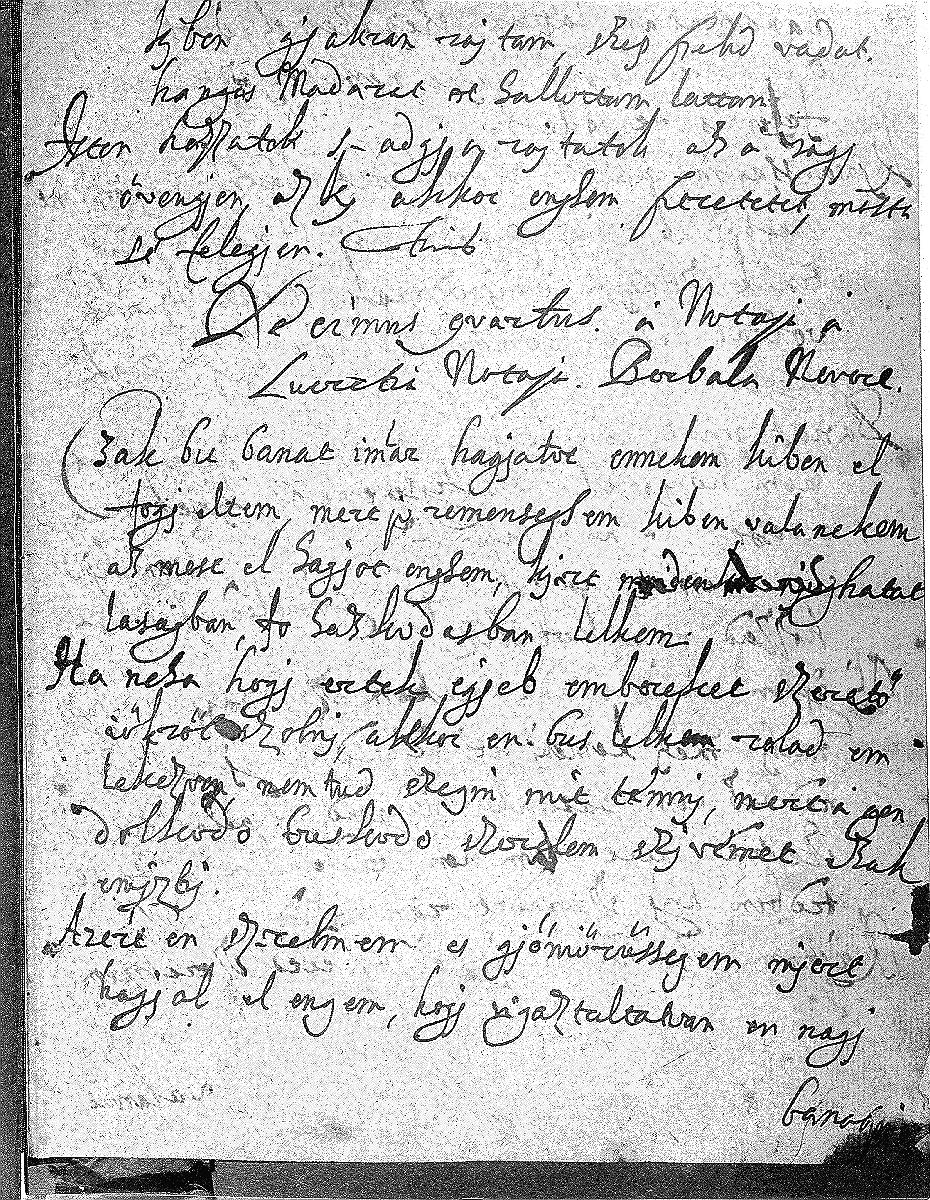 kzben gjakran rajtam, szep feld vadat.
hangos Madarat ot hallottam, lattam
Isten hozzatok s- adgjon rajtatok az a nagj
övengjen, az kj akkor engem szeretett, mostt
se felegjen. Finis
Decimus qvartus. á Notaja á
Lucretia Notaja. Borbala Nevere.
Czak bu banat immar hagjatoc ennekem kiben el
fogj eltem, mert remensegsem kiben vala nekem
az mert el hagjot engem, kjert hatat
lasagban, fo haszkodasban lelkem
Ha neha hogj ertek egjeb embereket szeretö
iökröt szolnj, akkor en bus lelkem rolad em
lekezven nem tud szegin mit tennj, mert igen
dolkodo buskodo szerelem szivemet Czak
enjzbj.
Azert en szerelmem es gjömörüssegem mjert
hagjal el engem, hogj vigaztaltalvan en nagj